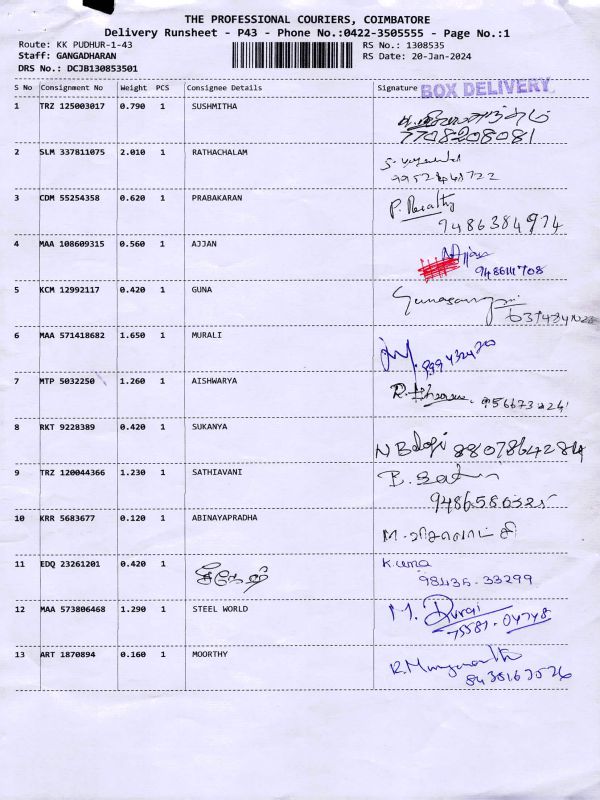 THE PROFESSIONAL COURIERS, COIMBATORE
Delivery Runsheet - P43 - Phone No.:0422-3505555 - Page No.:1
Route: KK PUDHUR-1-43 RS No.: 1308535
Staff: GANGADHARAN RS Date: 20-Jan-2024
DRS No.: DCJB130853501
S No Consignment No Weight PCS Consignee Details Signature BOX DELIVERY
1 TRZ 125003017 0.790 1 SUSHMITHA
7708208081
2 SLM 337811075 2.010 1 RATHACHALAM
3 CDM 55254358 0.620 1 PRABAKARAN
9486384974
4 MAA 108609315 0.560 1 AJJAN Ajjan
5 KCM 12992117 0.420 1 GUNA
6 MAA 571418682 1.650 1 MURALI
7 MTP 5032250 1.260 1 AISHWARYA
8 RKT 9228389 0.420 1 SUKANYA
N Balaji 8807864284
9 TRZ 120044366 1.230 1 SATHIAVANI
10 KRR 5683677 0.120 1 ABINAYAPRADHA
11 EDQ 23261201 0.420 1 K. uma
98435-33299
12 MAA 573806468 1.290 1 STEEL WORLD M. Durai
75581-04748
13 ART 1870894 0.160 1 MOORTHY